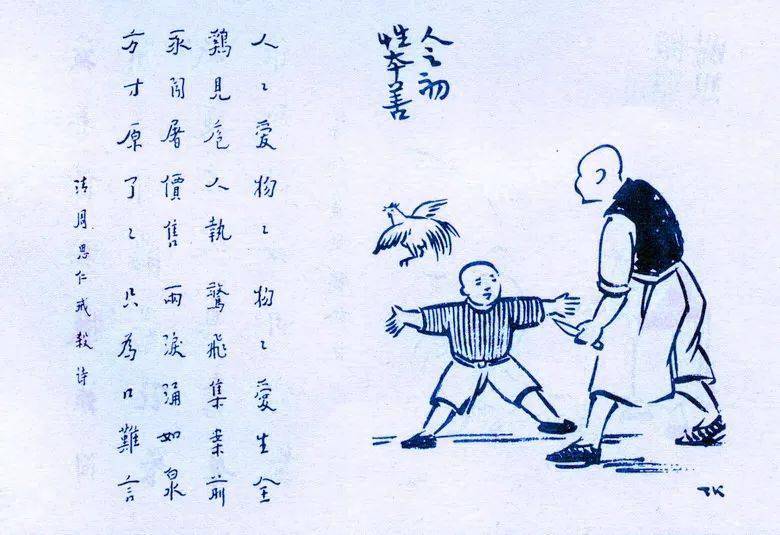 人之初
性本善
人〻愛物〻物〻愛生全
鷄見庖人執驚飛集案前
豕聞屠價售兩淚湧如泉
方寸原了〻只為口難言
清周思仁戒殺詩
TK